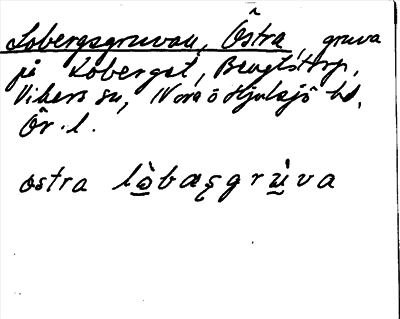 Lobergsgruvan, Östra, gruva
på Loberget, Bengtstorp,
Vikers sn, Nora o Hjulsjö bd,
Ör. l.
ostra lòbæşgrùva